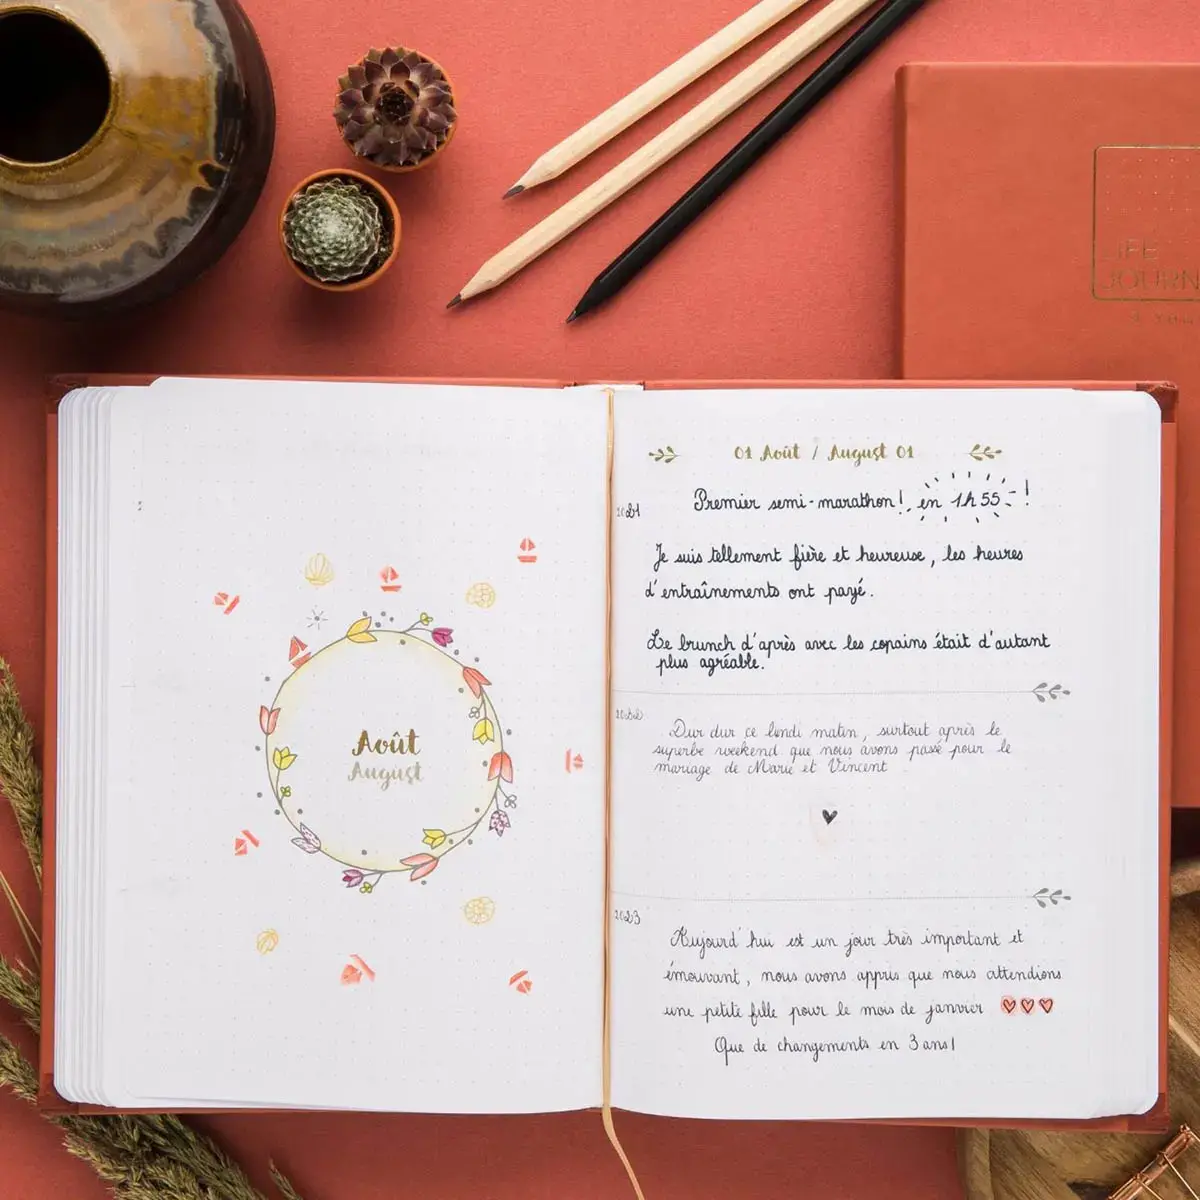 LIFE
JOURN
Août
August
01 Août / August 01
2021
Premier semi-marathon! en 1h55 !
Je suis tellement fière et heureuse, les heures
d'entraînements ont payé.
Le brunch d'après avec les copains était d'autant
plus agréable.
2022
Dur dur ce lundi matin, surtout après le
superbe weekend que nous avons passé pour le
mariage de Marie et Vincent
2023
Aujourd'hui est un jour très important et
émouvant, nous avons appris que nous attendions
une petite fille pour le mois de janvier
Que de changements en 3 ans!